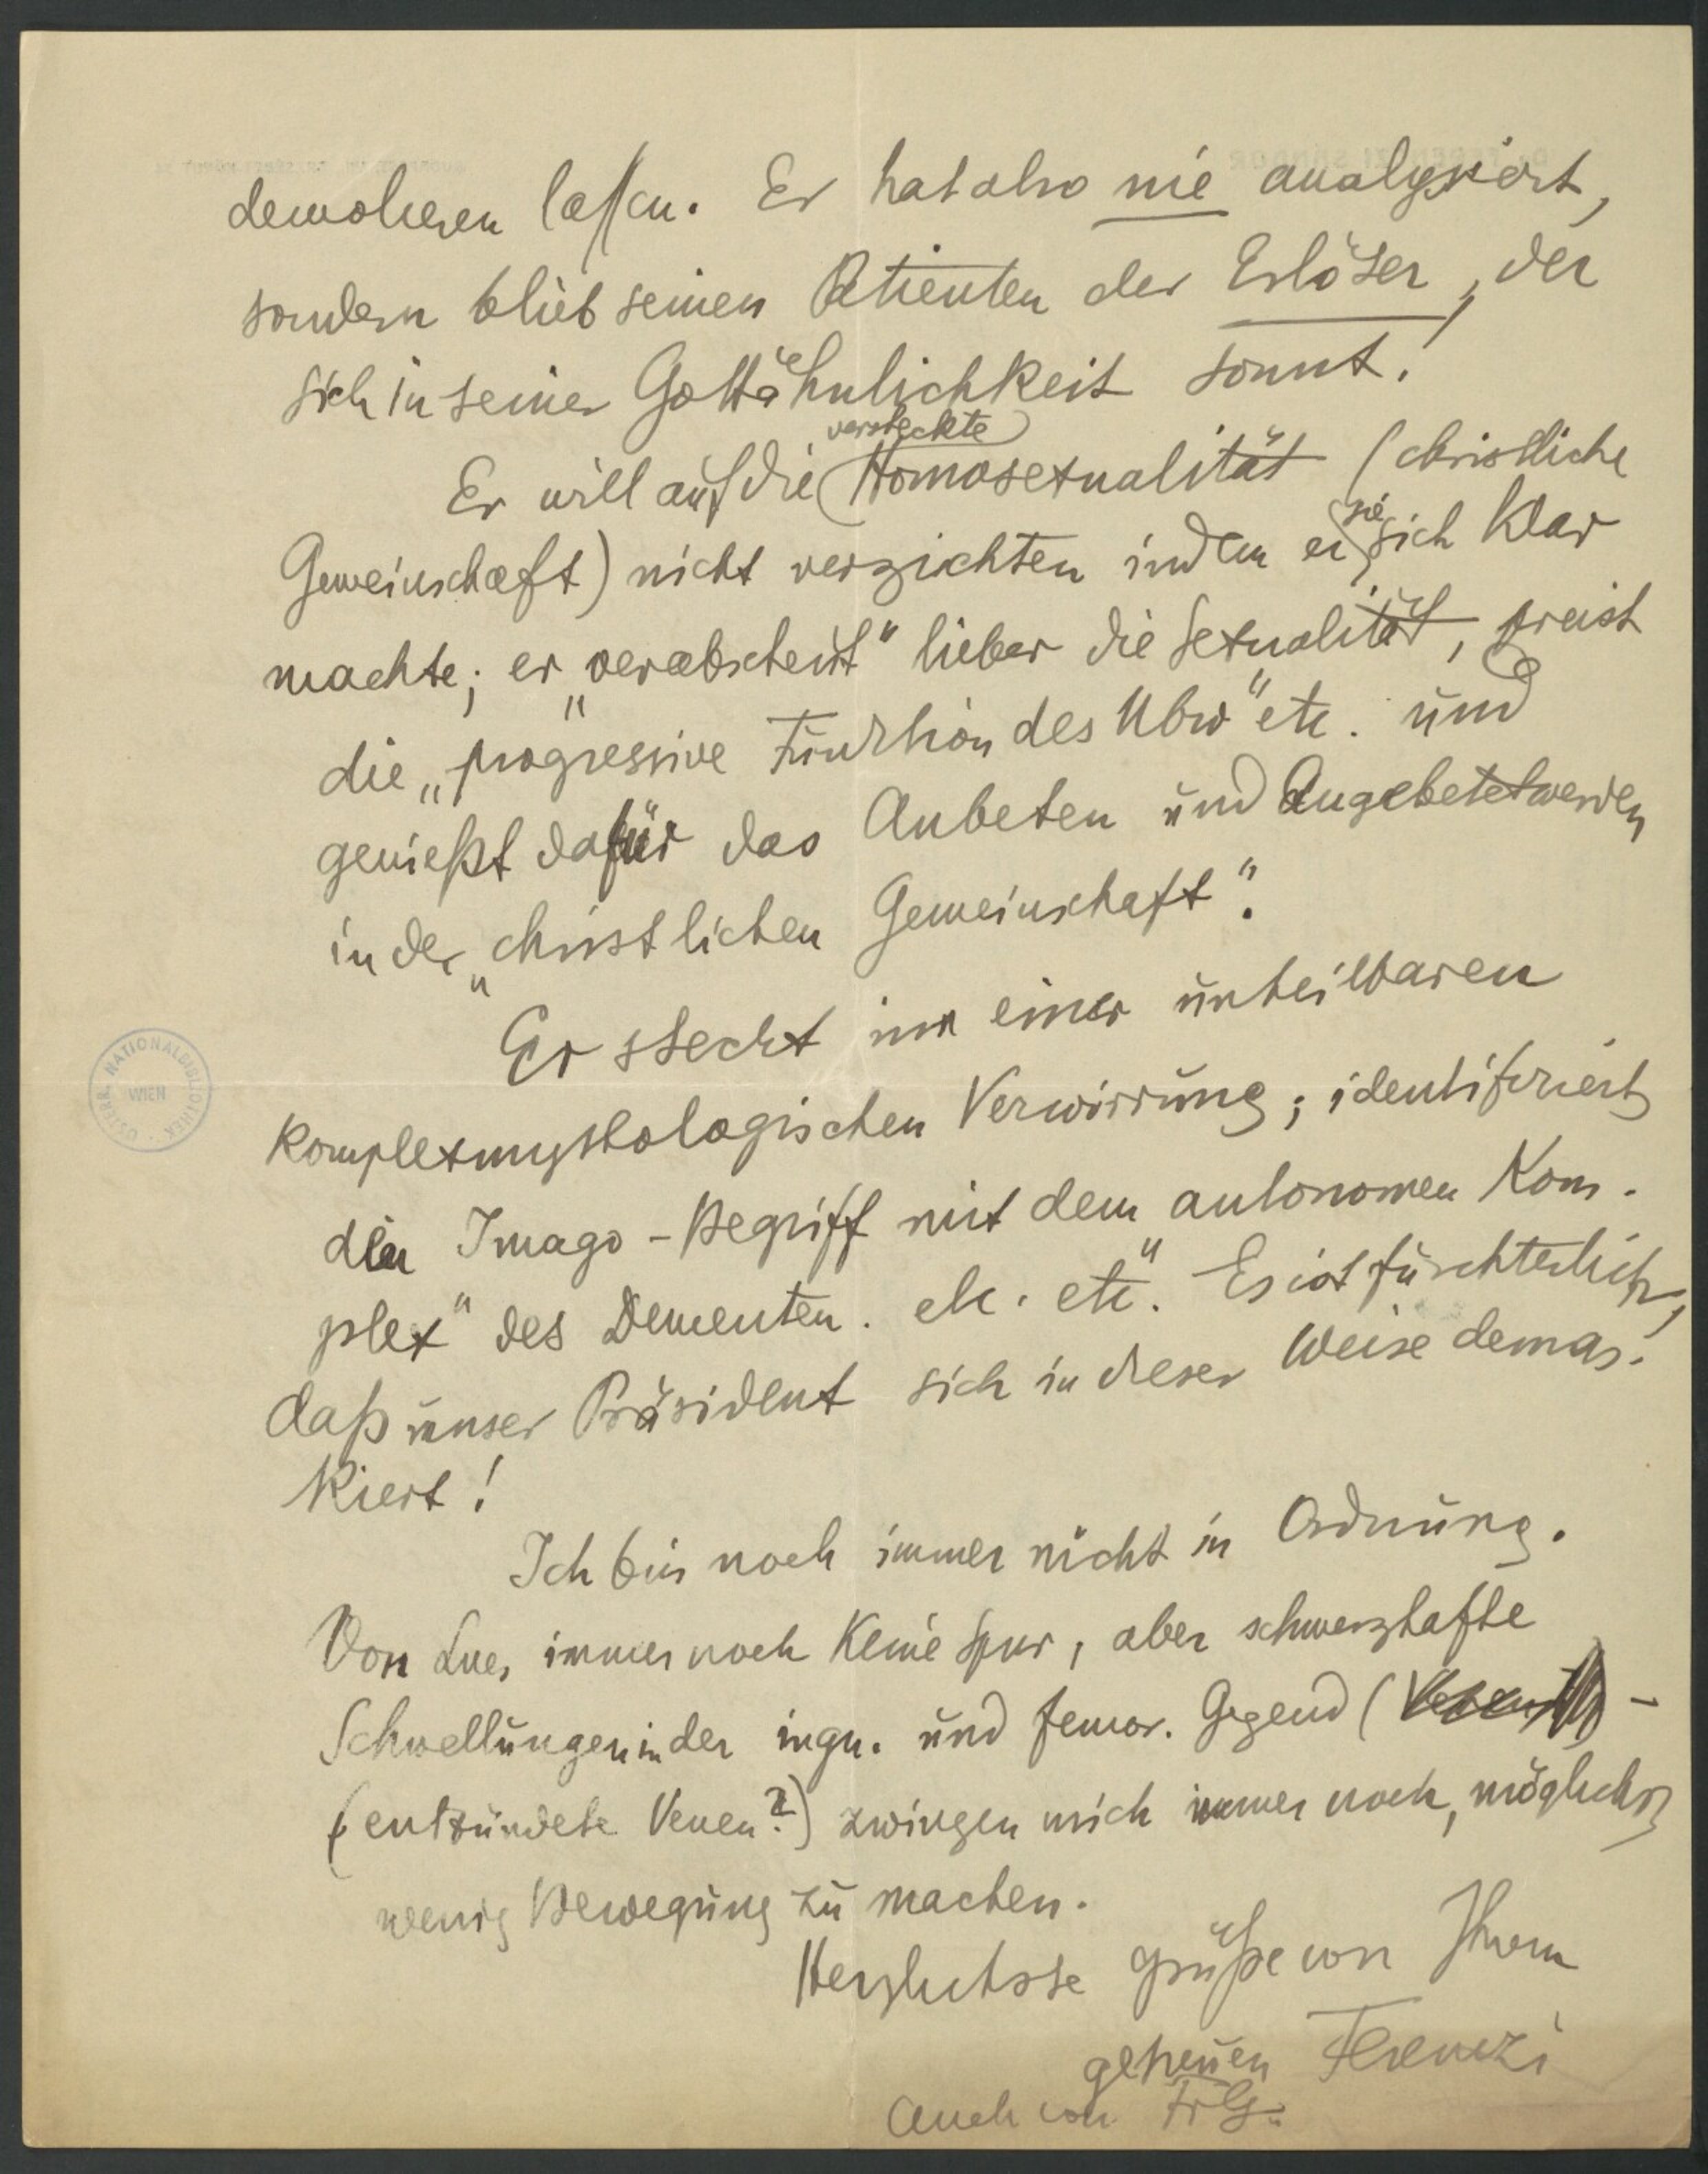 demolieren lassen. Er hat also nie analysiert,
sondern blieb seinen Patienten der Erlöser, der
sich in seiner Gottähnlichkeit sonnt!
versteckte
Er will auf die Homosexualität (christliche
sie
Gemeinschaft) nicht verzichten indem er sich klar
machte; er „verabscheut“ lieber die Sexualität, preist
die „progressive Funktion des Ubw“ etc. und
genießt dafür das Anbeten und Angebetetwerden
in der „christlichen Gemeinschaft“.
Er steckt in einer unheilbaren
komplexmythologischen Verwirrung; identifiziert
den Imago-Begriff mit dem autonomen Kom-
plex“ des Dementen. etc. etc“. Es ist fürchterlich,
daß unser Präsident sich in dieser Weise demas-
kiert!
Ich bin noch immer nicht in Ordnung.
Von Lues immer noch keine Spur, aber schmerzhafte
Schwellungen in der ingu. und femor. Gegend (
(entzündete Venen?) zwingen mich immer noch, möglichst
wenig Bewegung zu machen.
Herzlichste Grüße von Ihrem
getreuen Ferenczi
Auch von Fr G.
ÖSTERR. NATIONALBIBLIOTHEK
WIEN